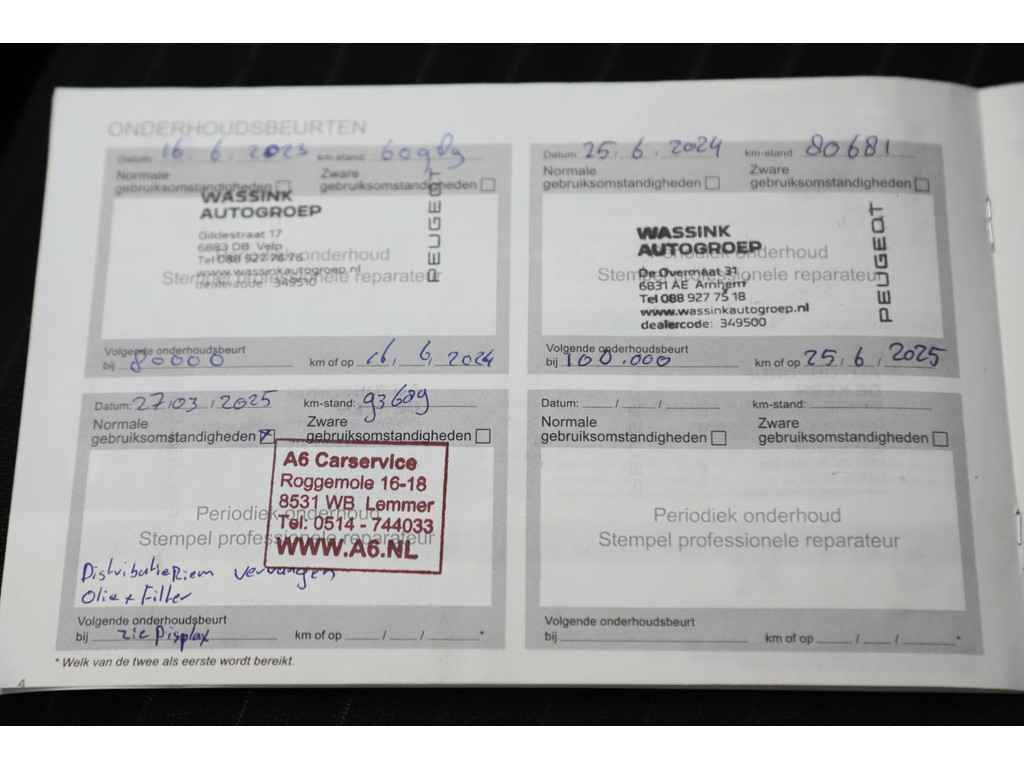 ONDERHOUDSBEURTEN
Datum: 16.6.2023 km-stand: 60989
Normale Zware
gebruiksomstandigheden gebruiksomstandigheden
WASSINK
AUTOGROEP
PEUGEOT
Gildestraat 17
6883 DB Velp
Tel 088 927 78 78
www.wassinkautogroep.nl
dealercode: 349510
Periodiek onderhoud
Stempel professionele reparateur
Volgende onderhoudsbeurt
bij 80000 km of op 16/6/2024
Datum: 25.6.2024 km-stand: 80681
Normale Zware
gebruiksomstandigheden gebruiksomstandigheden
WASSINK
AUTOGROEP
PEUGEOT
De Overmaat 31
6831 AE Arnhem
Tel 088 927 75 18
www.wassinkautogroep.nl
dealercode: 349500
Periodiek onderhoud
Stempel professionele reparateur
Volgende onderhoudsbeurt
bij 100.000 km of op 25/6/2025
Datum: 27/03/2025 km-stand: 93609
Normale Zware
gebruiksomstandigheden gebruiksomstandigheden
A6 Carservice
Roggemole 16-18
8531 WB Lemmer
Tel: 0514 - 744033
WWW.A6.NL
Periodiek onderhoud
Stempel professionele reparateur
Distributieriem vervangen
Olie + Filter
Volgende onderhoudsbeurt
bij zie Display km of op / / *
Datum: / / km-stand:
Normale Zware
gebruiksomstandigheden gebruiksomstandigheden
Periodiek onderhoud
Stempel professionele reparateur
Volgende onderhoudsbeurt
bij km of op / / *
* Welk van de twee als eerste wordt bereikt.
4